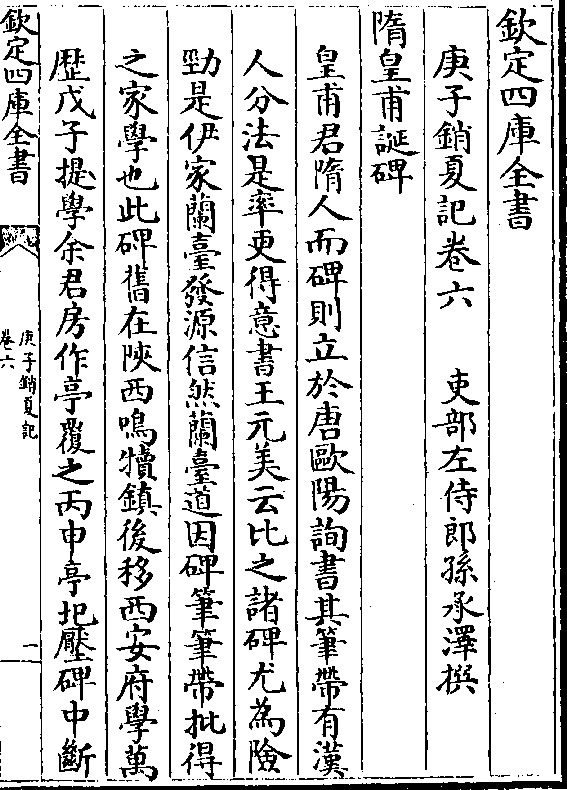 欽定四庫全書
庚子銷夏記卷六　　吏部左侍郎孫承澤撰
隋皇甫誕碑
皇甫君隋人而碑則立於唐歐陽詢書其筆帶有漢
人分法是率更得意書王元美云比之諸碑尤為險
勁是伊家蘭臺發源信然蘭臺道因碑筆筆帶批得
之家學也此碑舊在陜西鳴犢鎮後移西安府學萬
歴戊子提學余君房作亭覆之丙申亭圯壓碑中斷
欽定四庫全書
庚子銷夏記
卷六
一